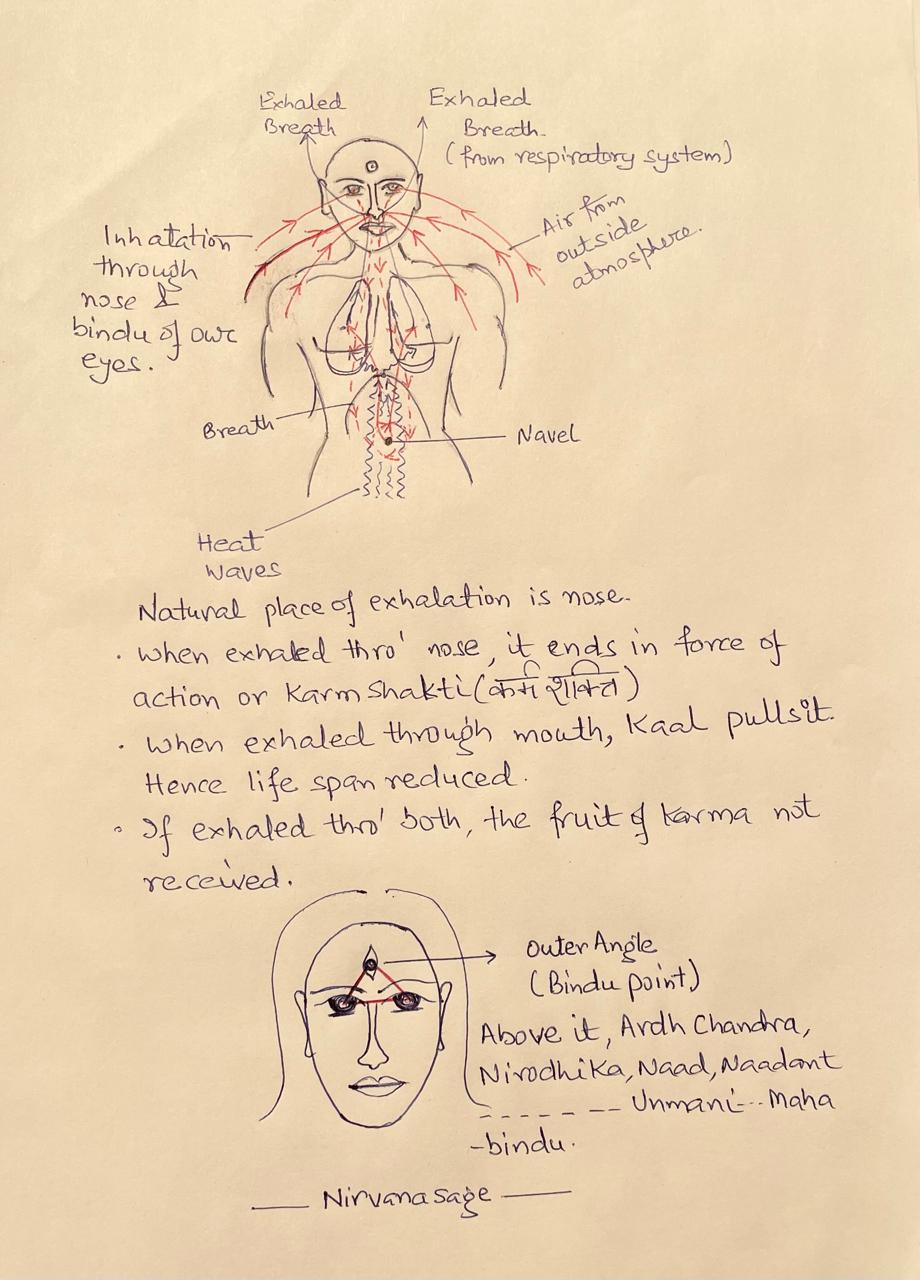 Exhaled
Breath
Exhaled
Breath.
(from respiratory system)
Inhalation
through
nose &
bindu of our
eyes.
Air from
outside
atmosphere.
Breath
Navel
Heat
waves
Natural place of exhalation is nose.
· When exhaled thro' nose, it ends in force of
action or Karm Shakti (कर्म शक्ति)
· When exhaled through mouth, Kaal pulls it.
Hence life span reduced.
· If exhaled thro' both, the fruit of Karma not
received.
Outer Angle
(Bindu point)
Above it, Ardh Chandra,
Nirodhika, Naad, Naadant
------- Unmani--- Maha
-bindu.
— Nirvana sage —